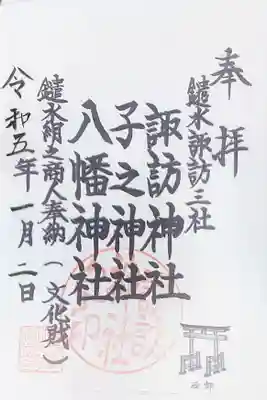 奉拝
鑓水諏訪三社
諏訪神社
子之神社
八幡神社
鑓水絹之商人奉納(文化財)
令和五年一月二日